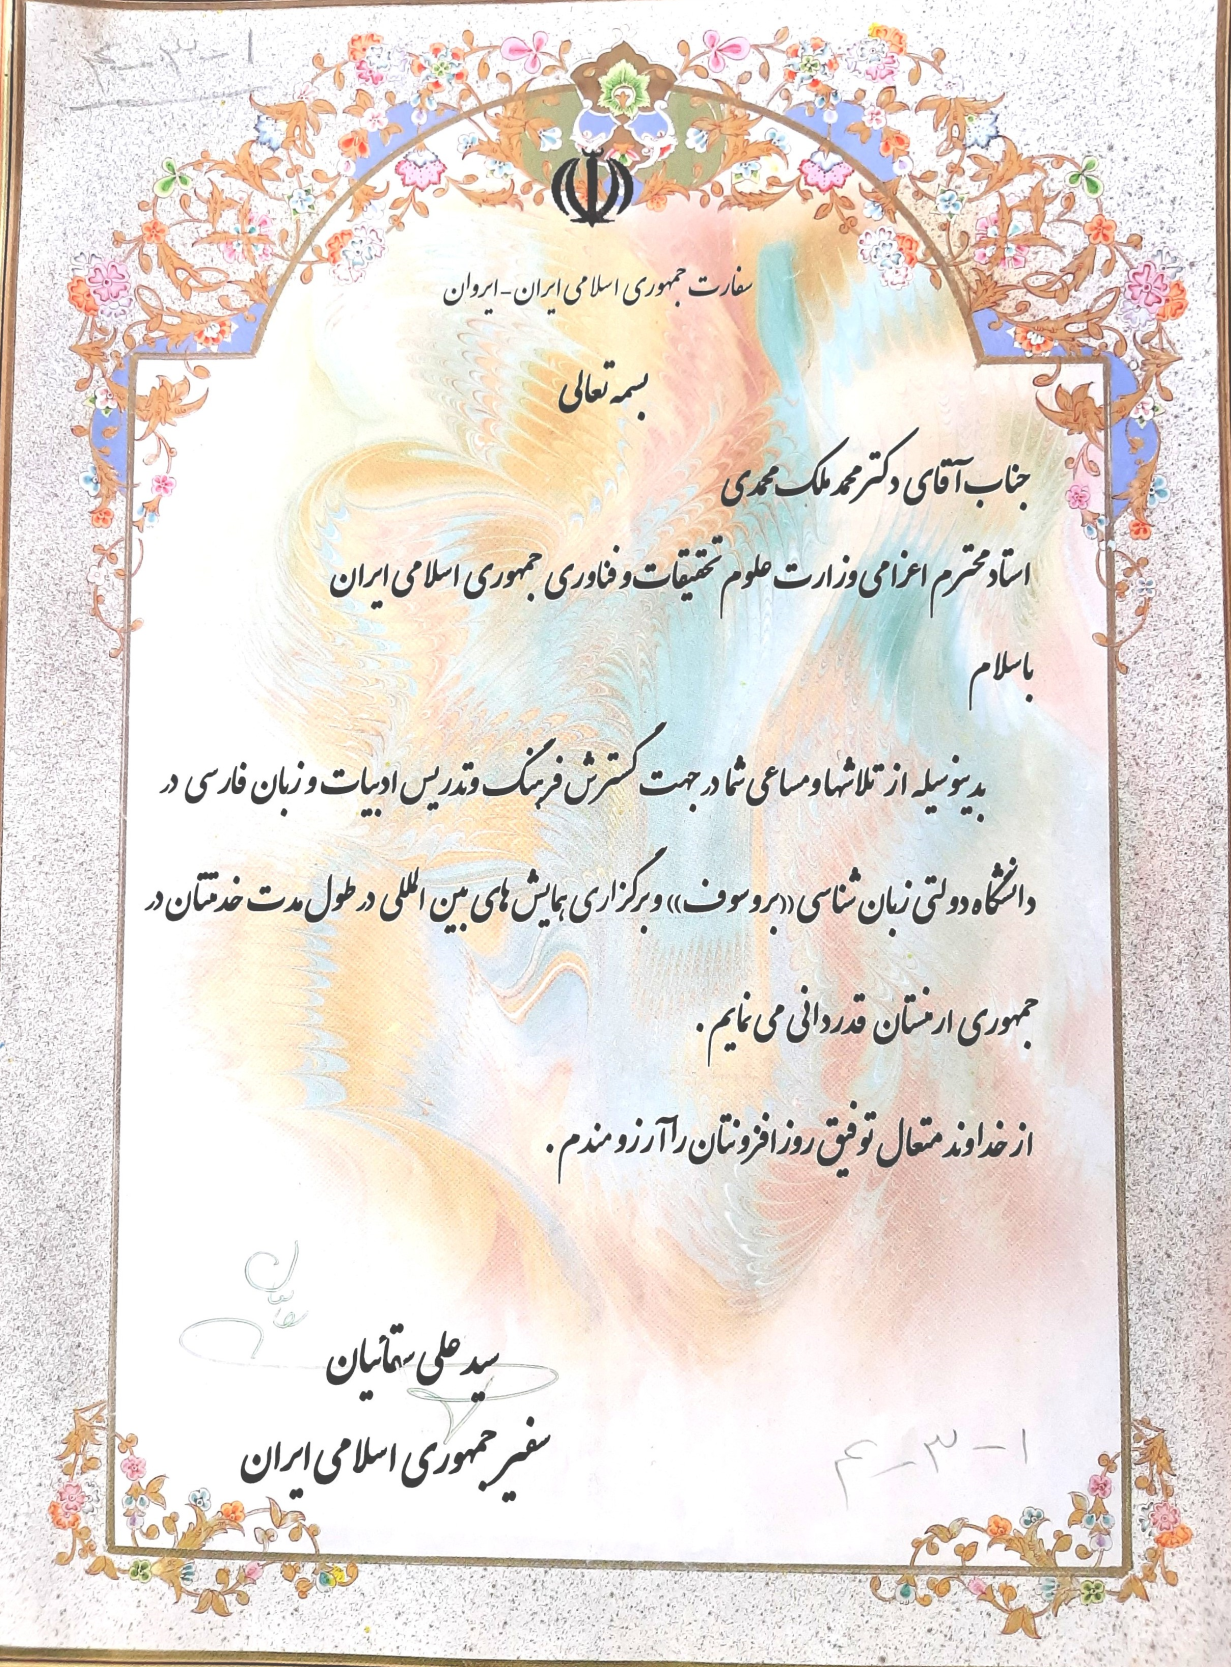 ۱-۳-۴
سفارت جمهوری اسلامی ایران-ایروان
بسمه تعالی
جناب آقای دکتر محمد ملک محمدی
استاد محترم اعزامی وزارت علوم تحقیقات و فناوری جمهوری اسلامی ایران
باسلام
بدینوسیله از تلاشها و مساعی شما در جهت گسترش فرهنگ و تدریس ادبیات و زبان فارسی در
دانشگاه دولتی زبان شناسی «بروسوف» و برگزاری همایش های بین المللی در طول مدت خدمتتان در
جمهوری ارمنستان قدردانی می نمایم.
از خداوند متعال توفیق روزافزونتان را آرزومندم.
سید علی سقائیان
سفیر جمهوری اسلامی ایران
۱-۳-۴